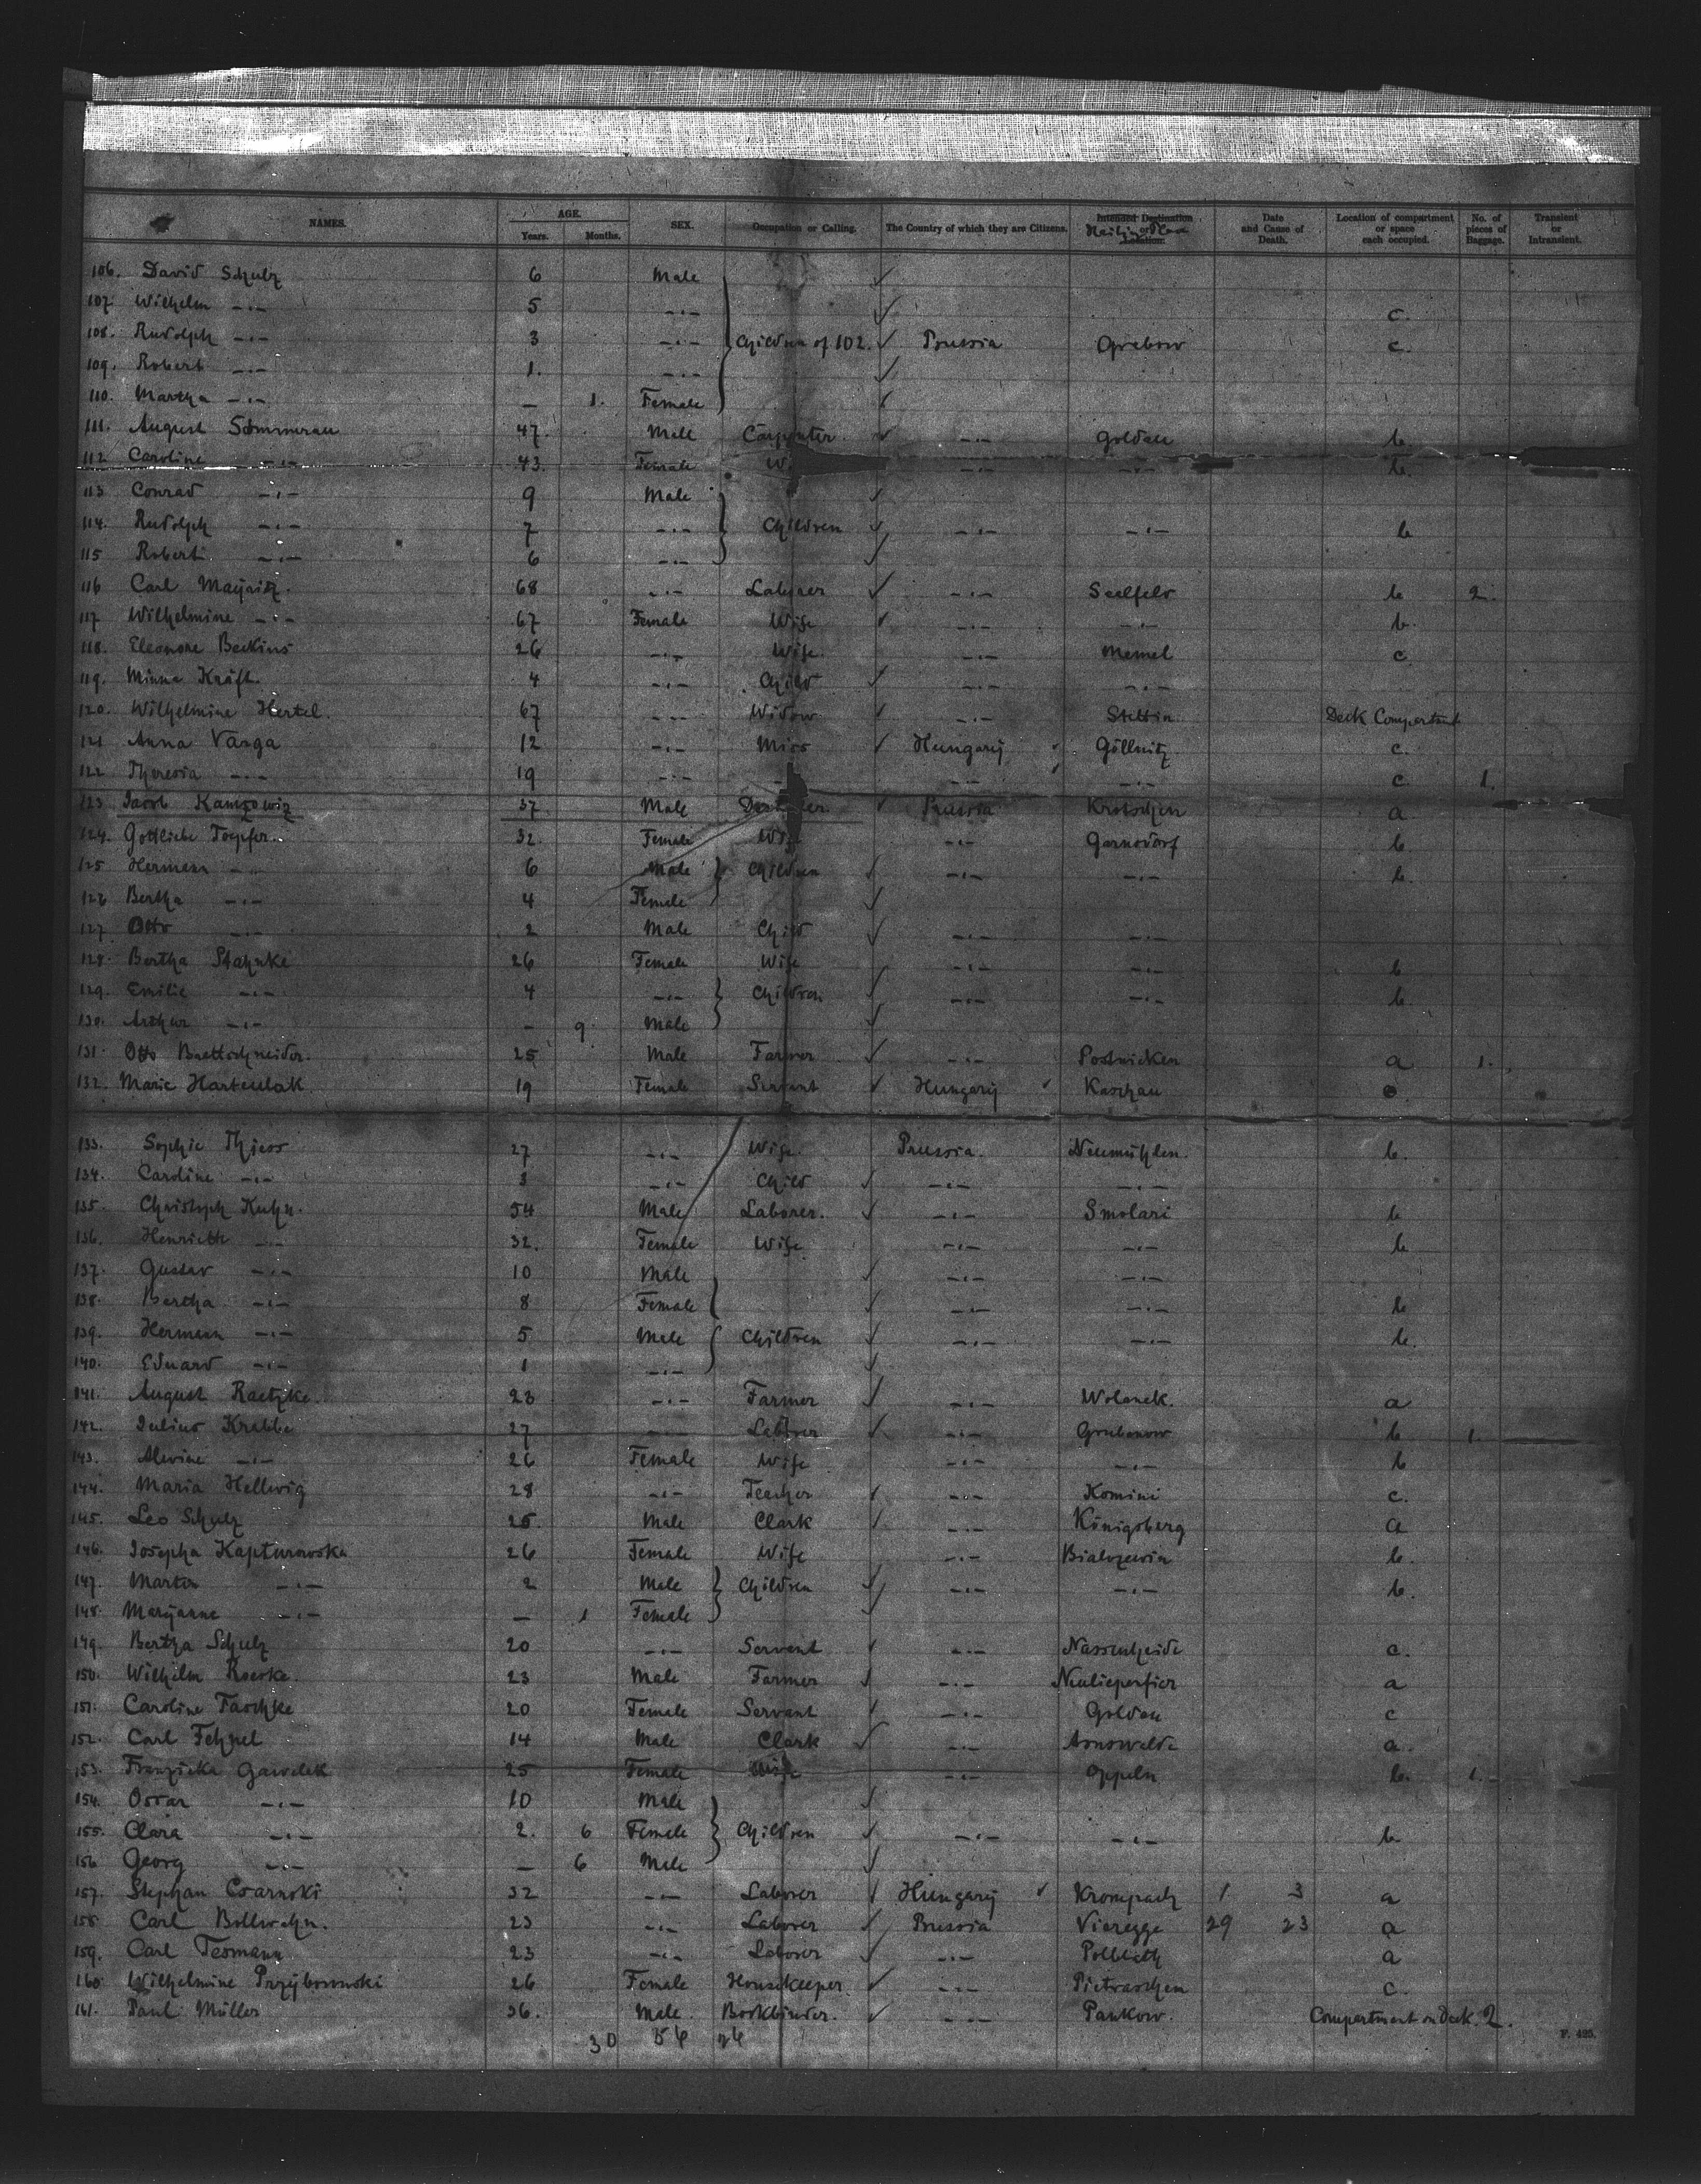 NAMES. AGE. Years. Months. SEX. Occupation or Calling. The Country of which they are Citizens. Intended Destination or Location. Date and Cause of Death. Location of compartment or space each occupied. No. of pieces of Baggage. Transient or Intransient.
106. David Schulz 6 Male ✓
107 Wilhelm -"- 5 -"- ✓ c.
108. Rudolph -"- 3 -"- Children of 102. ✓ Prussia Grabow c.
109. Robert -"- 1. -"- ✓
110. Martha -"- — 1. Female ✓
111. August Sommerau 47. Male Carpenter ✓ -"- Goldau b.
112 Caroline -"- 43. Female W. -"- -"- b.
113 Conrad -"- 9 Male ✓
114. Rudolph -"- 7 -"- Children ✓ -"- -"- b
115 Robert -"- 6 -"- ✓
116 Carl 68 -"- Laborer ✓ -"- Seelfeld b 2.
117 Wilhelmine -"- 67 Female Wife ✓ -"- -"- b.
118. Eleonore Beckius 26 -"- Wife. -"- Memel c.
119. Minna Kräft. 4 -"- Child ✓ -"- -"-
120. Wilhelmine Hertel. 67 -"- Widow ✓ -"- Stettin Deck Compartment
121 Anna Varga 12 -"- Miss ✓ Hungary ✓ Göllnitz. c.
122 Theresia -"- 19 -"- -"- -"- c 1.
123 Jacob Kamsowiz 37 Male ✓ Prussia Krotschen a.
124. Gottliebe Toepfer. 32. Female Wife -"- Garnsdorf b
125 Hermann -"- 6 Male Children ✓ -"- -"- b.
126 Bertha -"- 4 Female ✓
127. Otto -"- 2 Male Child ✓ -"- -"-
128. Bertha Stahnke 26 Female Wife -"- -"- b
129. Emilie -"- 4 -"- Children ✓ -"- -"- b.
130. Arthur -"- - 9. Male ✓
131. Otto Brettschneider. 25 Male Farmer ✓ -"- Postnicken a 1.
132. Marie Hartculak 19 Female Servant ✓ Hungary ✓ Kaschau
133. Sophie Thiess 27 -"- Wife. Prussia. Neumühlen. b.
134. Caroline -"- 3 -"- Child ✓ -"- -"-
135. Christoph Kuhn. 54 Male Laborer. ✓ -"- Smolari b
136. Henriette -"- 32. Female Wife -"- -"- b
137. Gustav -"- 10 Male ✓ -"- -"-
138. Bertha -"- 8 Female ✓ -"- -"- b
139. Hermann -"- 5 Male Children ✓ -"- -"- b.
140. Eduard -"- 1 -"- ✓
141. August Raetzke. 23 -"- Farmer ✓ -"- Wolanek. a
142. Julius Krabbe 27 -"- Laborer ✓ -"- Grubenow b 1.
143. Alwine -"- 26 Female Wife -"- -"- b
144. Maria Hellwig 28 -"- Teacher ✓ -"- Komini c.
145. Leo Schulz 25. Male Clark ✓ -"- Königsberg a
146. Josepha Kapturowska 26 Female Wife -"- b.
147. Martin -"- 2 Male Children ✓ -"- -"- b.
148. Maryanne -"- — 1 Female ✓
149. Bertha Schulz 20 -"- Servant ✓ -"- Nassenheide c.
150. Wilhelm Roeske. 23 Male Farmer ✓ -"- a
151. Caroline Faschke 20 Female Servant ✓ -"- Goldau c
152. Carl Fehnel 14 Male Clark ✓ -"- Arnswalde a.
153. Franziska Gawelek 25 Female Wife -"- Oppeln b. 1.
154. Oscar -"- 10 Male ✓
155. Clara -"- 2. 6 Female Children ✓ -"- -"- b
156 Georg -"- — 6 Male ✓
157. Stephan Csarnski 32 -"- Laborer ✓ Hungary ✓ Krompach 1 3 a
158. Carl Bollwahn. 23 -"- Laborer ✓ Prussia Vieregge 29 23 a
159. Carl Tesmann 23 -"- Laborer ✓ -"- a
160. Wilhelmine Przyborowski 26 Female Housekeeper ✓ -"- Pietraschen c.
161. Paul Müller 36. Male Bookbinder. ✓ -"- Pankow. Compartment on Deck. 2.
30 54 26
F. 425.